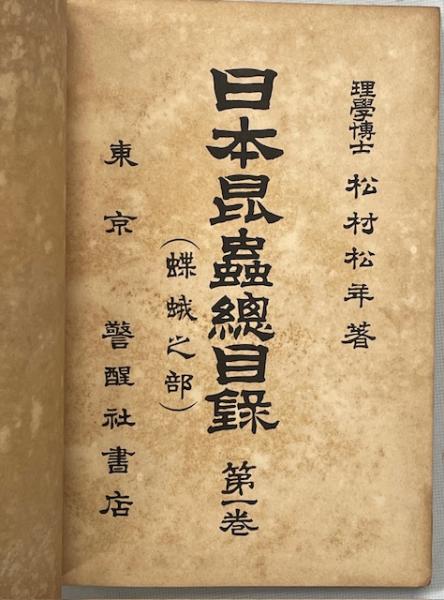 理學博士 松村松年著
日本昆蟲總目錄 第一巻
(蝶蛾之部)
東京 警醒社書店